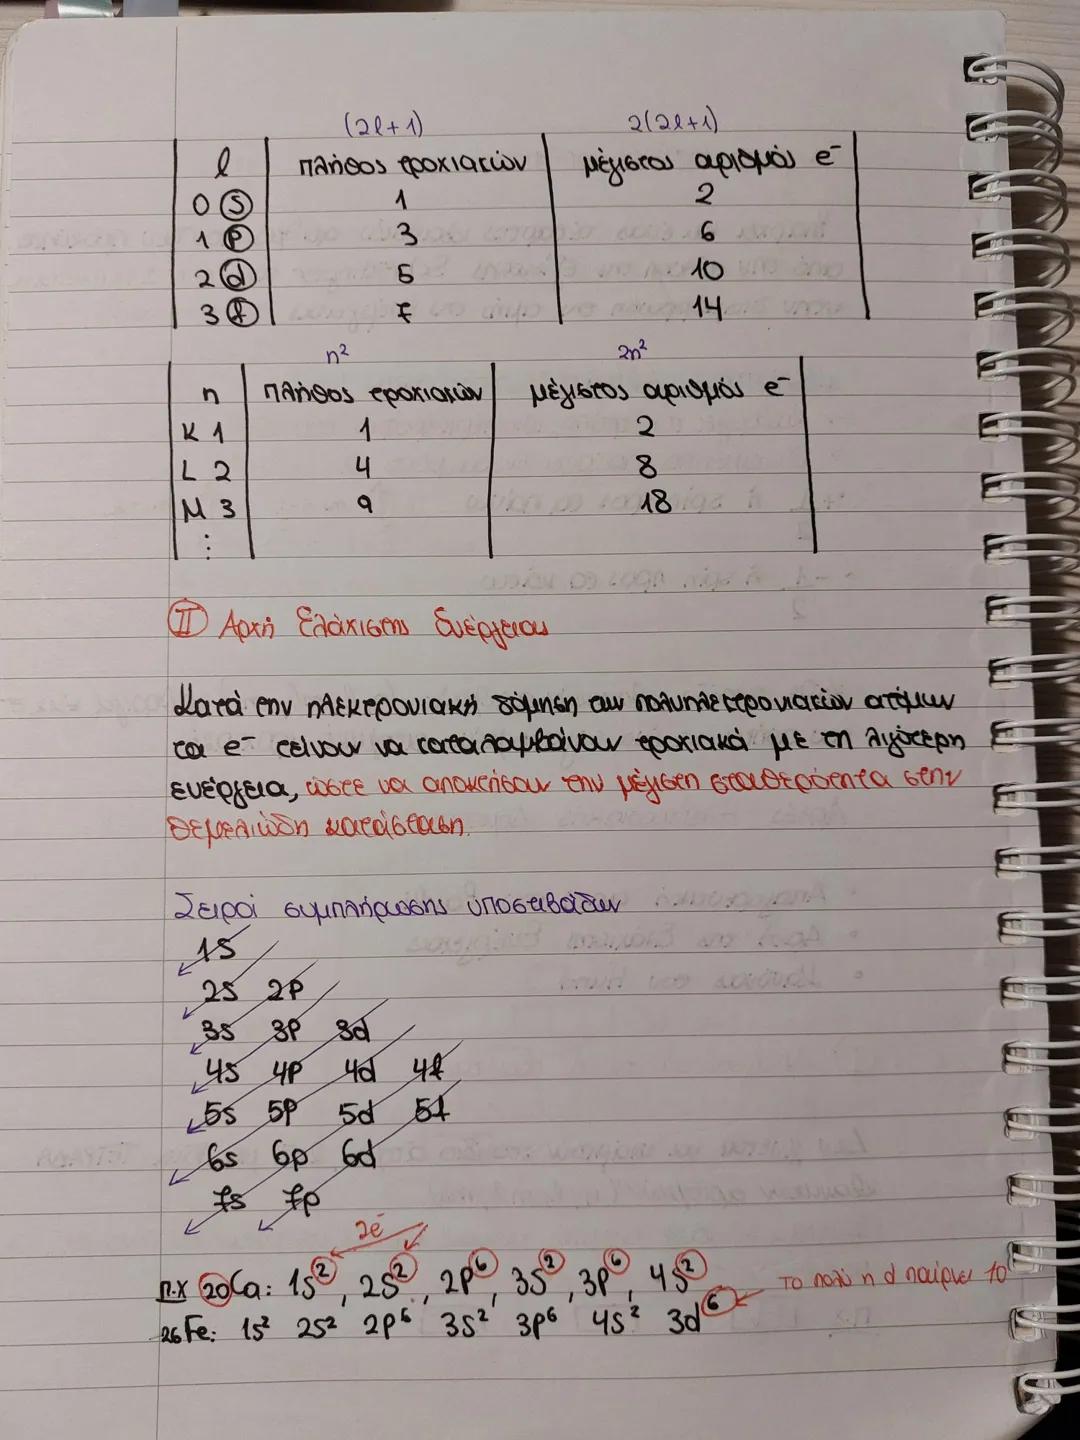 (2l+1) 2(2l+1)
l πλήθος τροχιακών μέγιστος αριθμός e⁻
0 s 1 2
1 p 3 6
2 d 5 10
3 f 7 14
n² 2n²
n πλήθος τροχιακών μέγιστος αριθμός e⁻
K 1 1 2
L 2 4 8
M 3 9 18
⋮
II Αρχή Ελάχιστης Ενέργειας
Κατά την ηλεκτρονιακή δόμηση των πολυηλεκτρονιακών ατόμων
τα e⁻ τείνουν να καταλαμβάνουν τροχιακά με τη λιγότερη
ενέργεια, ώστε να αποκτήσουν την μέγιστη σταθερότητα στην
θεμελιώδη κατάσταση.
Σειρά συμπλήρωσης υποστιβάδων
1s
2s 2p
3s 3p 3d
4s 4p 4d 4f
5s 5p 5d 5f
6s 6p 6d
7s 7p
2e⁻
π.χ 20Ca: 1s², 2s², 2p⁶, 3s², 3p⁶, 4s² το πολύ η d παίρνει 10
26Fe: 1s² 2s² 2p⁶ 3s² 3p⁶ 4s² 3d⁶